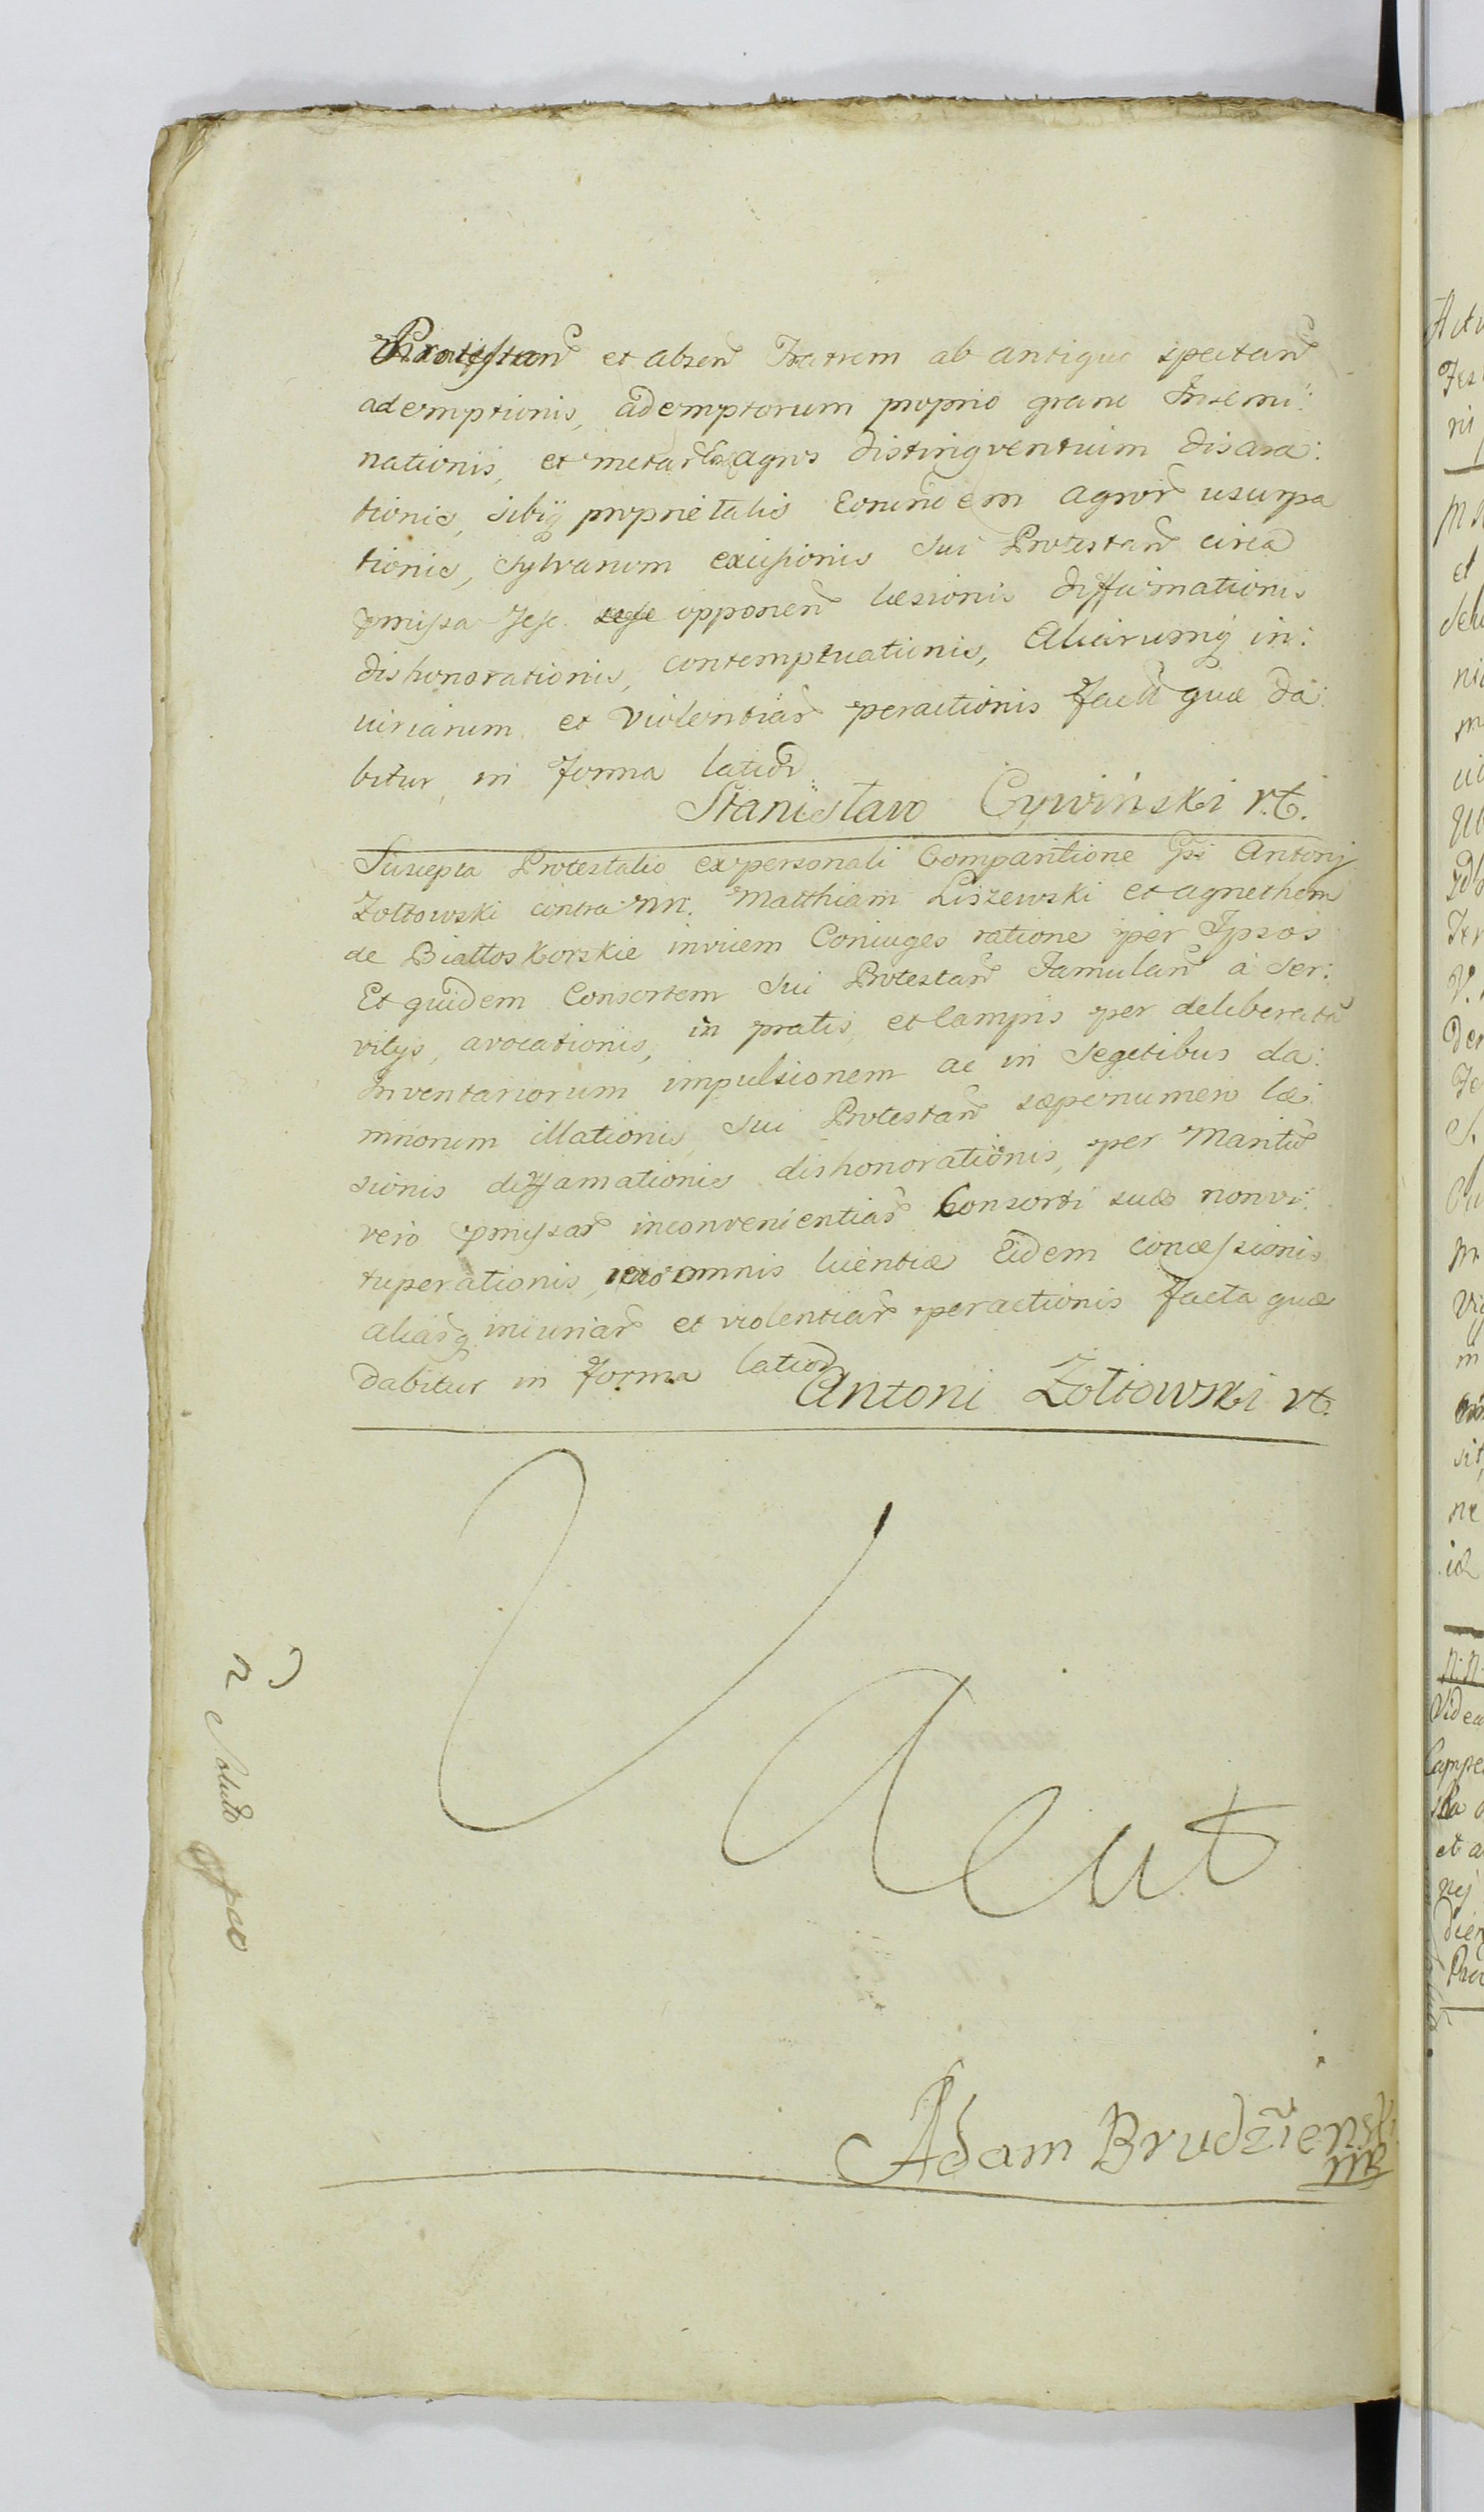 Protestan et absen Fratrem ab antiquo spectan
ademptionis, ademptorum proprio grano Insemi:
nationis, et metar agros distingventuim disara:
tionis, sibiq proprietatis Eorundem agror usurpa
tionis, sylvarum excisionis sui Protestan circa
pmissa Jese opponen læsionis diffamationis
dishonorationis, contemptuationis, Aliarumq in:
iuriarum et violentiar peractionis facta quæ da:
bitur in forma latiori
Stanisław Cywiński r.t.
Suscepta Protestatio ex personali Comparitione Gsi Antonij
Zołtowski contra NN. Matthiam Liszewski et Agnethem
de Białłoskorskie invicem Coniuges ratione per Ipsos
Et quidem Consortem sui Protestan Famulan a ser:
vitys, avocationis, in pratis et campis per deliberata
Inventariorum impulsionem ac in segetibus da:
mnorum illationis, sui Protestan sæpenumero læ:
sionis diffamationis dishonorationis, per Maritu
vero pmissar inconvenientiar Consorti suæ nonvi:
tuperationis, omnis licentiæ Eidem concessionis
aliarq iniuriar et violentiar peractionis facta quæ
dabitur in forma latiori
Antoni Zołtowski rt.
Adam Brudzieński
mp